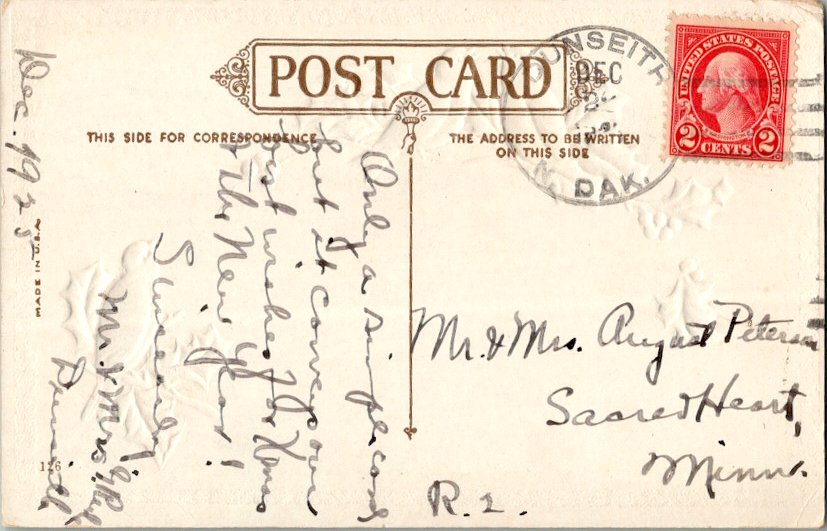 POST CARD
THIS SIDE FOR CORRESPONDENCE
THE ADDRESS TO BE WRITTEN
ON THIS SIDE
DUNSEITH
DEC
N. DAK.
UNITED STATES POSTAGE
2 CENTS 2
Dec. 1925
MADE IN U.S.A.
126
Only a simple card
but it conveys our
best wishes for Xmas
& the New Year!
Sincerely
Mr. & Mrs.
Dunseith
Mr. & Mrs. August Peterson
Sacred Heart,
Minn.
R. 2.